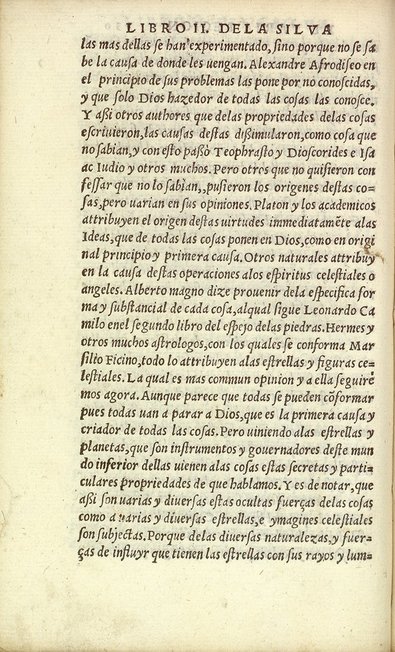 LIBRO II. DE LA SILVA
las mas dellas se han experimentado, sino porque no se sa
be la causa de donde les uengan. Alexandre Afrodiseo en
el principio de sus problemas las pone por no conoscidas,
y que solo Dios hazedor de todas las cosas las conosce.
Y aßi otros authores que delas propriedades delas cosas
escriuieron, las causas destas dißimularon, como cosa que
no sabian, y con esto paßò Teophrasto y Dioscorides e Isa
ac Iudio y otros muchos. Pero otros que no quisieron con
fessar que no lo sabian,, pusieron los origenes destas co-
sas, pero varian en sus opiniones. Platon y los academicos
attribuyen el origen destas uirtudes immediatamẽte alas
Ideas, que de todas las cosas ponen en Dios, como en origi
nal principio y primera causa. Otros naturales attribuy
en la causa destas operaciones alos espiritus celestiales o
angeles. Alberto magno dize prouenir dela especifica for
ma y substancial de cada cosa, alqual sigue Leonardo Ca
milo enel segundo libro del espejo delas piedras. Hermes y
otros muchos astrologos, con los quales se conforma Mar
silio Ficino, todo lo attribuyen alas estrellas y figuras ce-
lestiales. La qual es mas commun opinion y a ella seguirè
mos agora. Aunque parece que todas se pueden cõformar
pues todas uan a parar a Dios, que es la primera causa y
criador de todas las cosas. Pero uiniendo alas estrellas y
planetas, que son instrumentos y gouernadores deste mun
do inferior dellas uienen alas cosas estas secretas y parti-
culares propriedades de que hablamos. Y es de notar, que
aßi son uarias y diuersas estas ocultas fuerças delas cosas
como a uarias y diuersas estrellas, e ymagines celestiales
son subjectas. Porque delas diuersas naturalezas, y fuer-
ças de influyr que tienen las estrellas con sus rayos y lum-